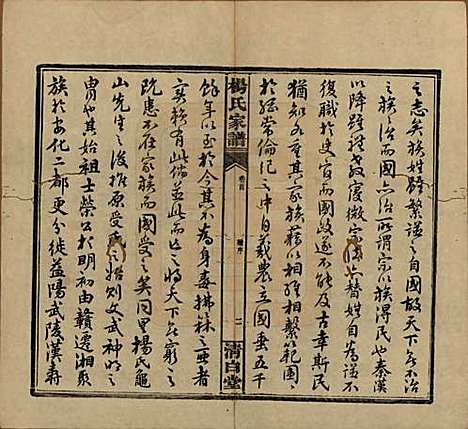 之志矣族姓辭繫謹之自國故天下無不
之族之治而國亦治所謂宗以族得民也秦漢
以降雖禮教寖微宗法亦替姓自為謹不
復職於史官而國政遂不能及古章斯民
猶知各重其家族藉以相維相繫範圍
於經常倫紀之中自羲農立國垂五千
楊氏家譜
卷首
譜序
二
清白堂
餘年以至於今其不為身毒拂菻之亞者
實賴有此儔並此而亡之將天下無窮之
既應不在家族而國受之矣同里楊氏龜
山先生之後推原受氏之始則文武神明之
胄也其始祖士榮公於明初由贛遷湘聚
族於安化二都更分徙益陽武陵漢壽